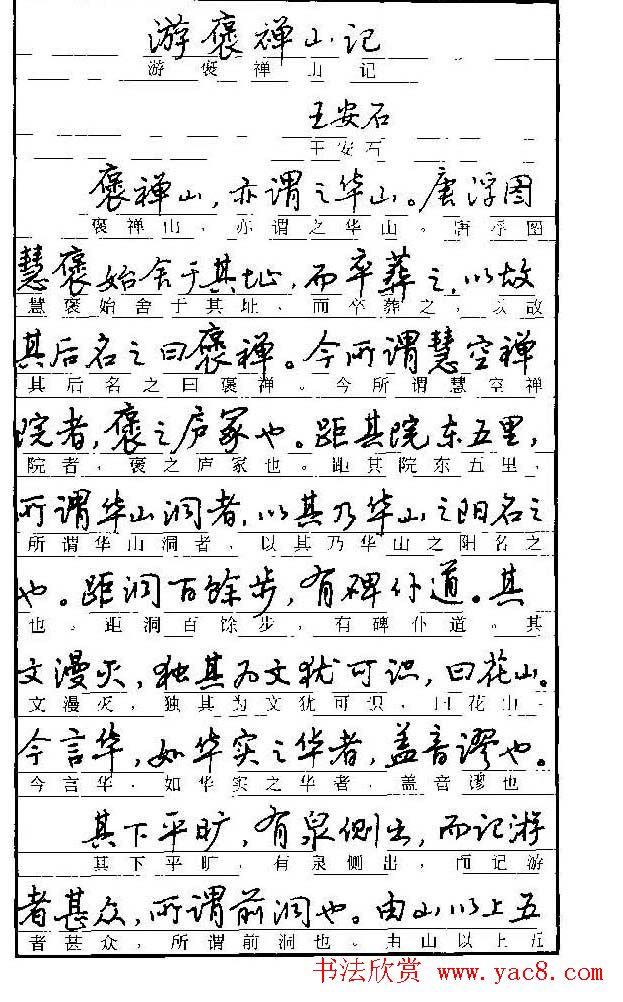 游褒禅山记
游褒禅山记
王安石
王安石
褒禅山，亦谓之华山。唐浮图
褒禅山，亦谓之华山。唐浮图
慧褒始舍于其址，而卒葬之，以故
慧褒始舍于其址，而卒葬之，以故
其后名之曰褒禅。今所谓慧空禅
其后名之曰褒禅。今所谓慧空禅
院者，褒之庐冢也。距其院东五里，
院者，褒之庐冢也。距其院东五里，
所谓华山洞者，以其乃华山之阳名之
所谓华山洞者，以其乃华山之阳名之
也。距洞百馀步，有碑仆道。其
也。距洞百馀步，有碑仆道。其
文漫灭，独其为文犹可识，曰花山。
文漫灭，独其为文犹可识，曰花山。
今言华，如华实之华者，盖音谬也。
今言华，如华实之华者，盖音谬也
其下平旷，有泉侧出，而记游
其下平旷，有泉侧出，而记游
者甚众，所谓前洞也。由山以上五
者甚众，所谓前洞也。由山以上五
书法欣赏 www.yac8.com